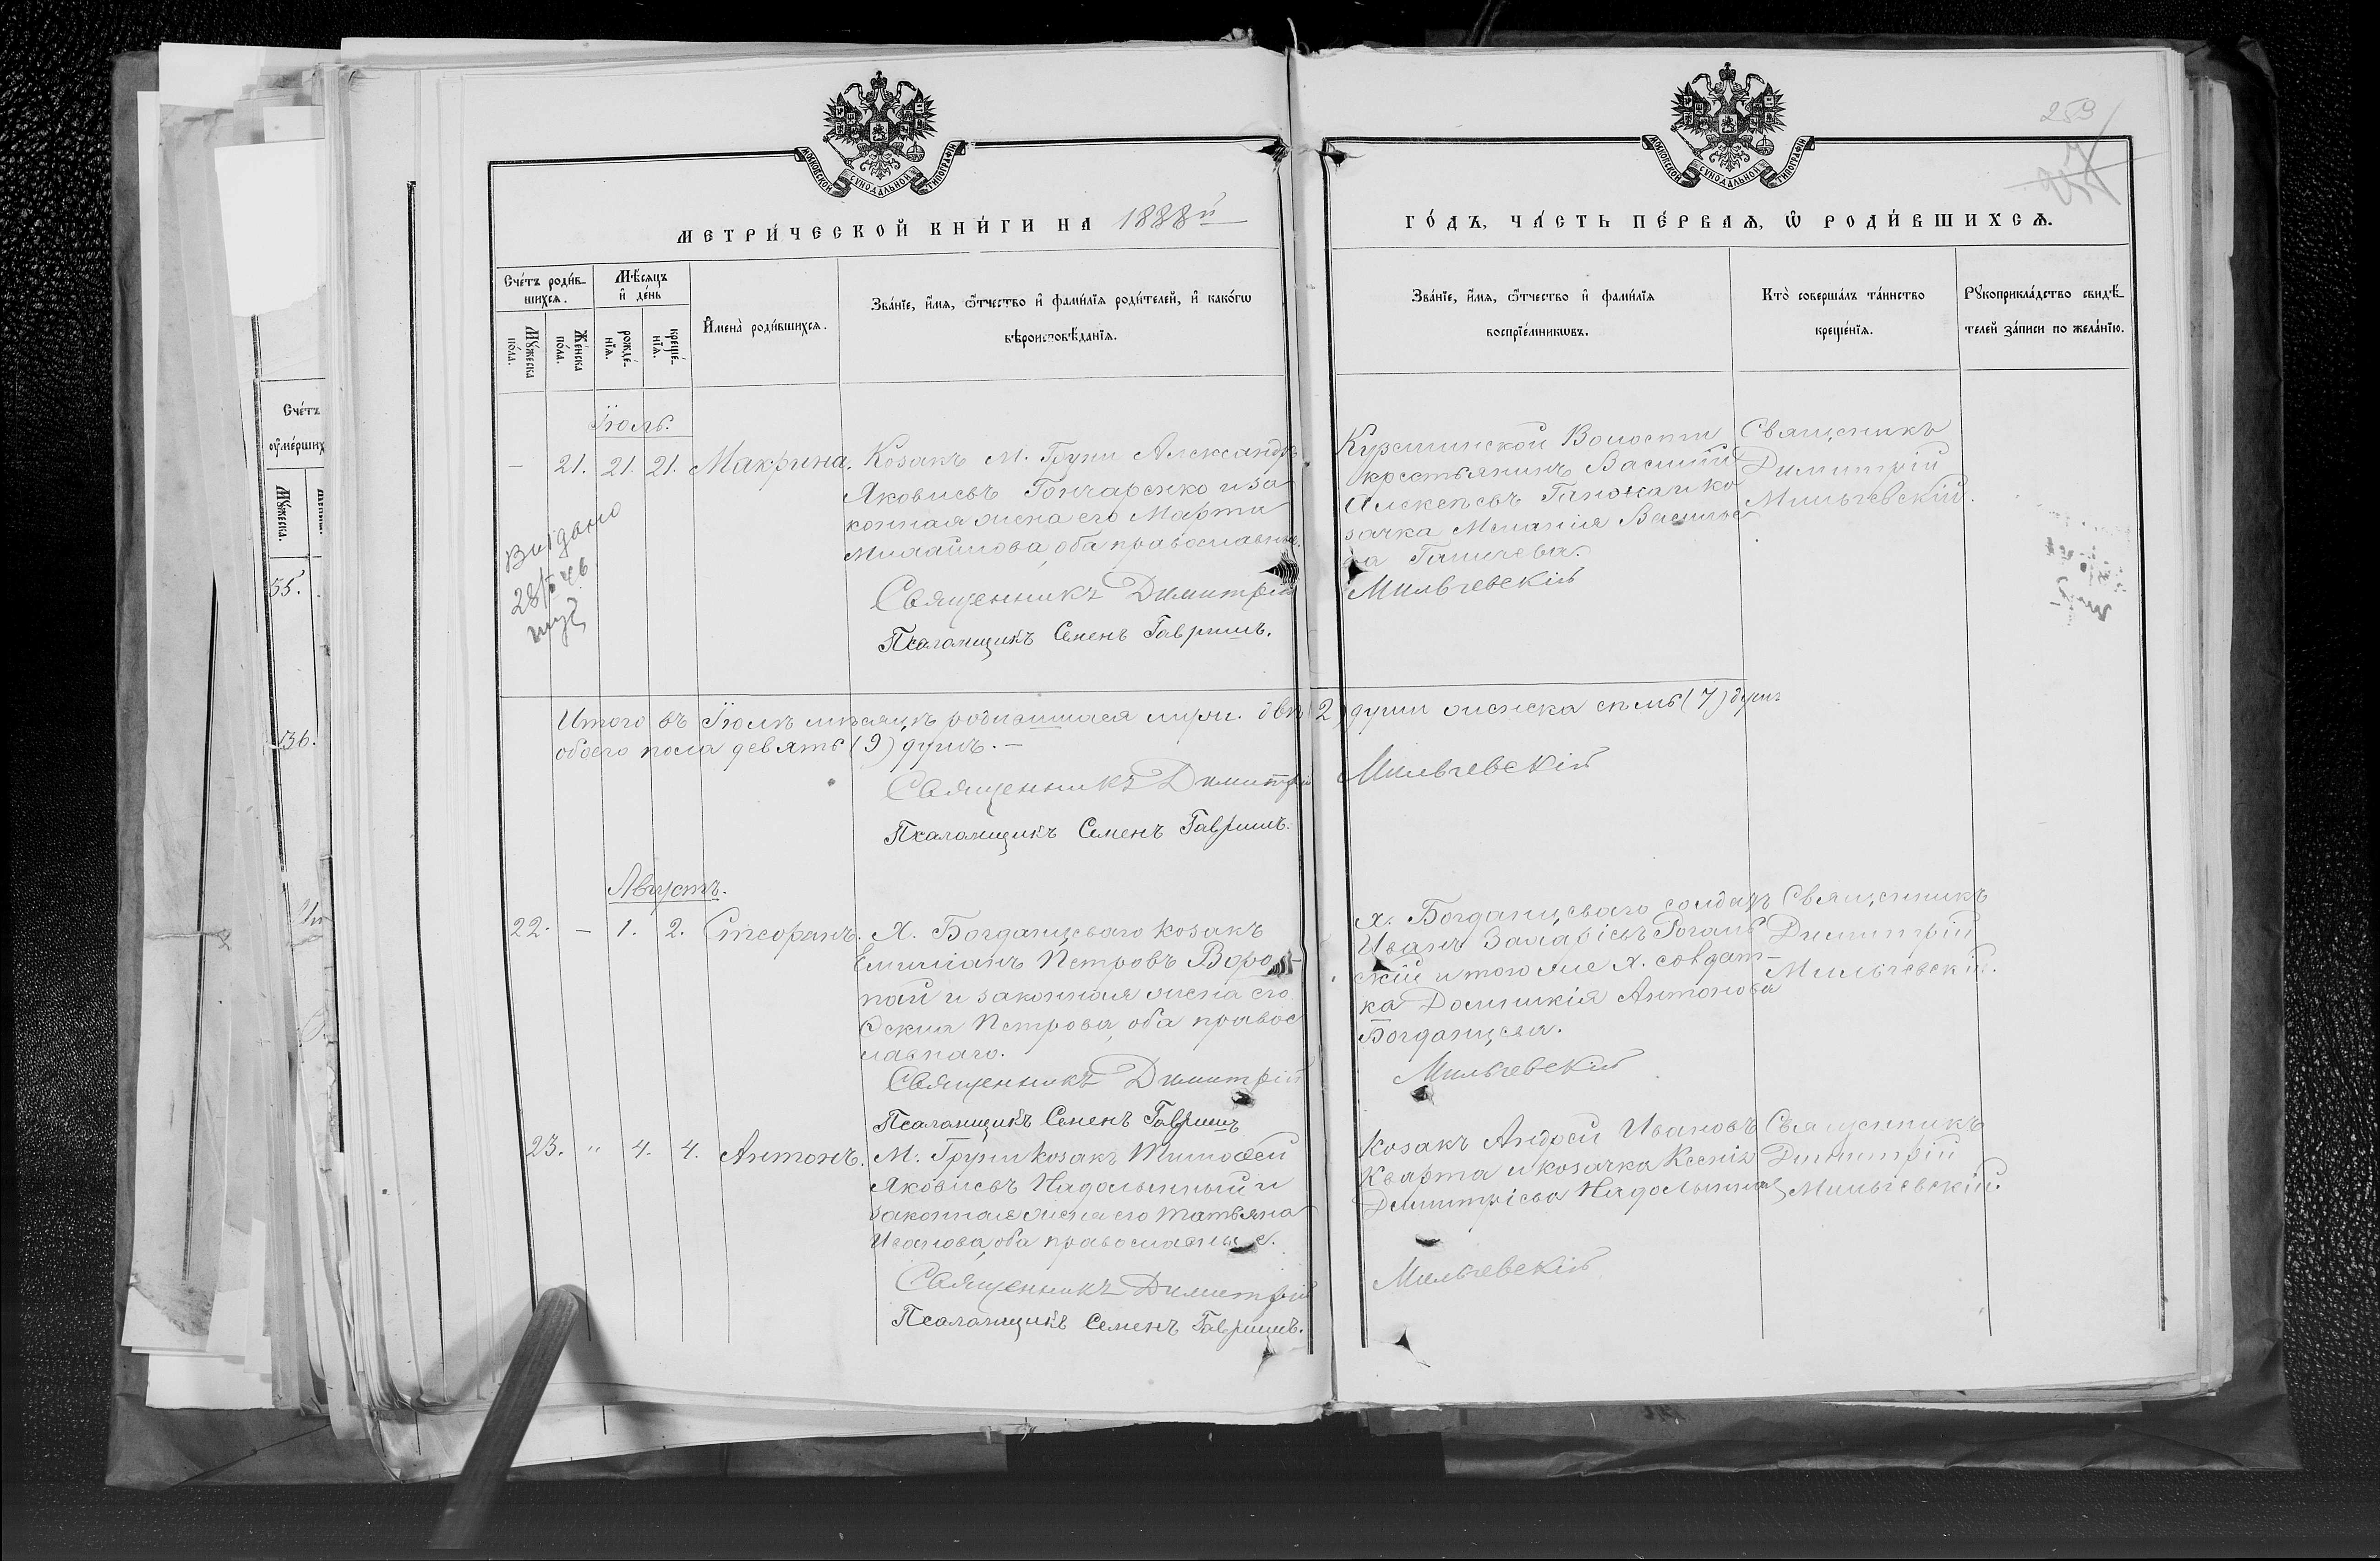 МОСКОВСКОЙ СѴНОДАЛЬНОЙ ТИПОГРАФІИ
МОСКОВСКОЙ СѴНОДАЛЬНОЙ ТИПОГРАФІИ
259
МЕТРИ́ЧЕСКОЙ КНИ́ГИ НА 1888й
ГО́ДЪ, ЧА́СТЬ ПЕ́РВАѦ, Ѡ҆ РОДИ́ВШИХСѦ.
Сче́тъ роди́в-
шихсѧ.
Мѣ́сѧцъ
и҆ де́нь
Мꙋ́жеска
по́ла.
Же́нска
по́ла.
рожде́-
нїѧ.
креще́-
нїѧ.
И҆мена̀ роди́вшихсѧ.
Зва́нїе, и҆́мѧ, ѻ҆́тчество и҆ фами́лїѧ роди́телей, и҆ како́гѡ
вѣроисповѣ́данїѧ.
Зва́нїе, и҆́мѧ, ѻ҆́тчество и҆ фами́лїѧ
воспрїе́мникѡвъ.
Кто̀ соверша́лъ та́инство
креще́нїѧ.
Рꙋкоприкла́дство свидѣ́-
телей за́писи по жела́нїю.
Сче́тъ
ᲂу҆ме́рших
Мꙋ́жеска.
55.
136.
Іюль.
— 21. 21. 21. Макрина.
Козакъ М. Груни Александръ
Яковлевъ Гончаренко и за
конная жена его Марти
Михайлова, оба православные.
Священникъ Димитрій
Псаломщикъ Семенъ Гавришъ.
Выдано
28/
Волости
крестьянинъ Василій
Алексѣевъ ко
зачка Меланія Василье
ва
Мильчевскій
Священникъ
Димитрій
Мильчевскій.
Итого въ Іюлѣ мѣсяцѣ родившихся муж. двѣ (2) души женска семь (7) душъ
обоего пола девять (9) душъ. —
Священникъ Димитрій Мильчевскій
Псаломщикъ Семенъ Гавришъ.
Августъ.
22. — 1. 2. Стефанъ.
Х. Богданцеваго козакъ
Емиліанъ Петровъ Воро-
пай и законная жена его
Петрова, оба правос
лавнаго.
Священникъ Димитрій
Псаломщикъ Семенъ Гавришъ
х. Богданцеваго солдатъ
Иванъ
скій и того же х. солдат-
ка Домникія Антонова
Богданцева.
Мильчевскій
Священникъ
Димитрій
Мильчевскій.
23. " 4. 4. Антонъ.
М. Груни козакъ Тимоѳей
Яковлевъ Надольнный и
законная жена его Татьяна
Иванова, оба православные.
Священникъ Димитрій
Псаломщикъ Семенъ Гавришъ.
Козакъ Андрей Ивановъ
Кварта и козачка Ксенія
Димитріева Надольнная
Мильчевскій
Священникъ
Димитрій
Мильчевскій.